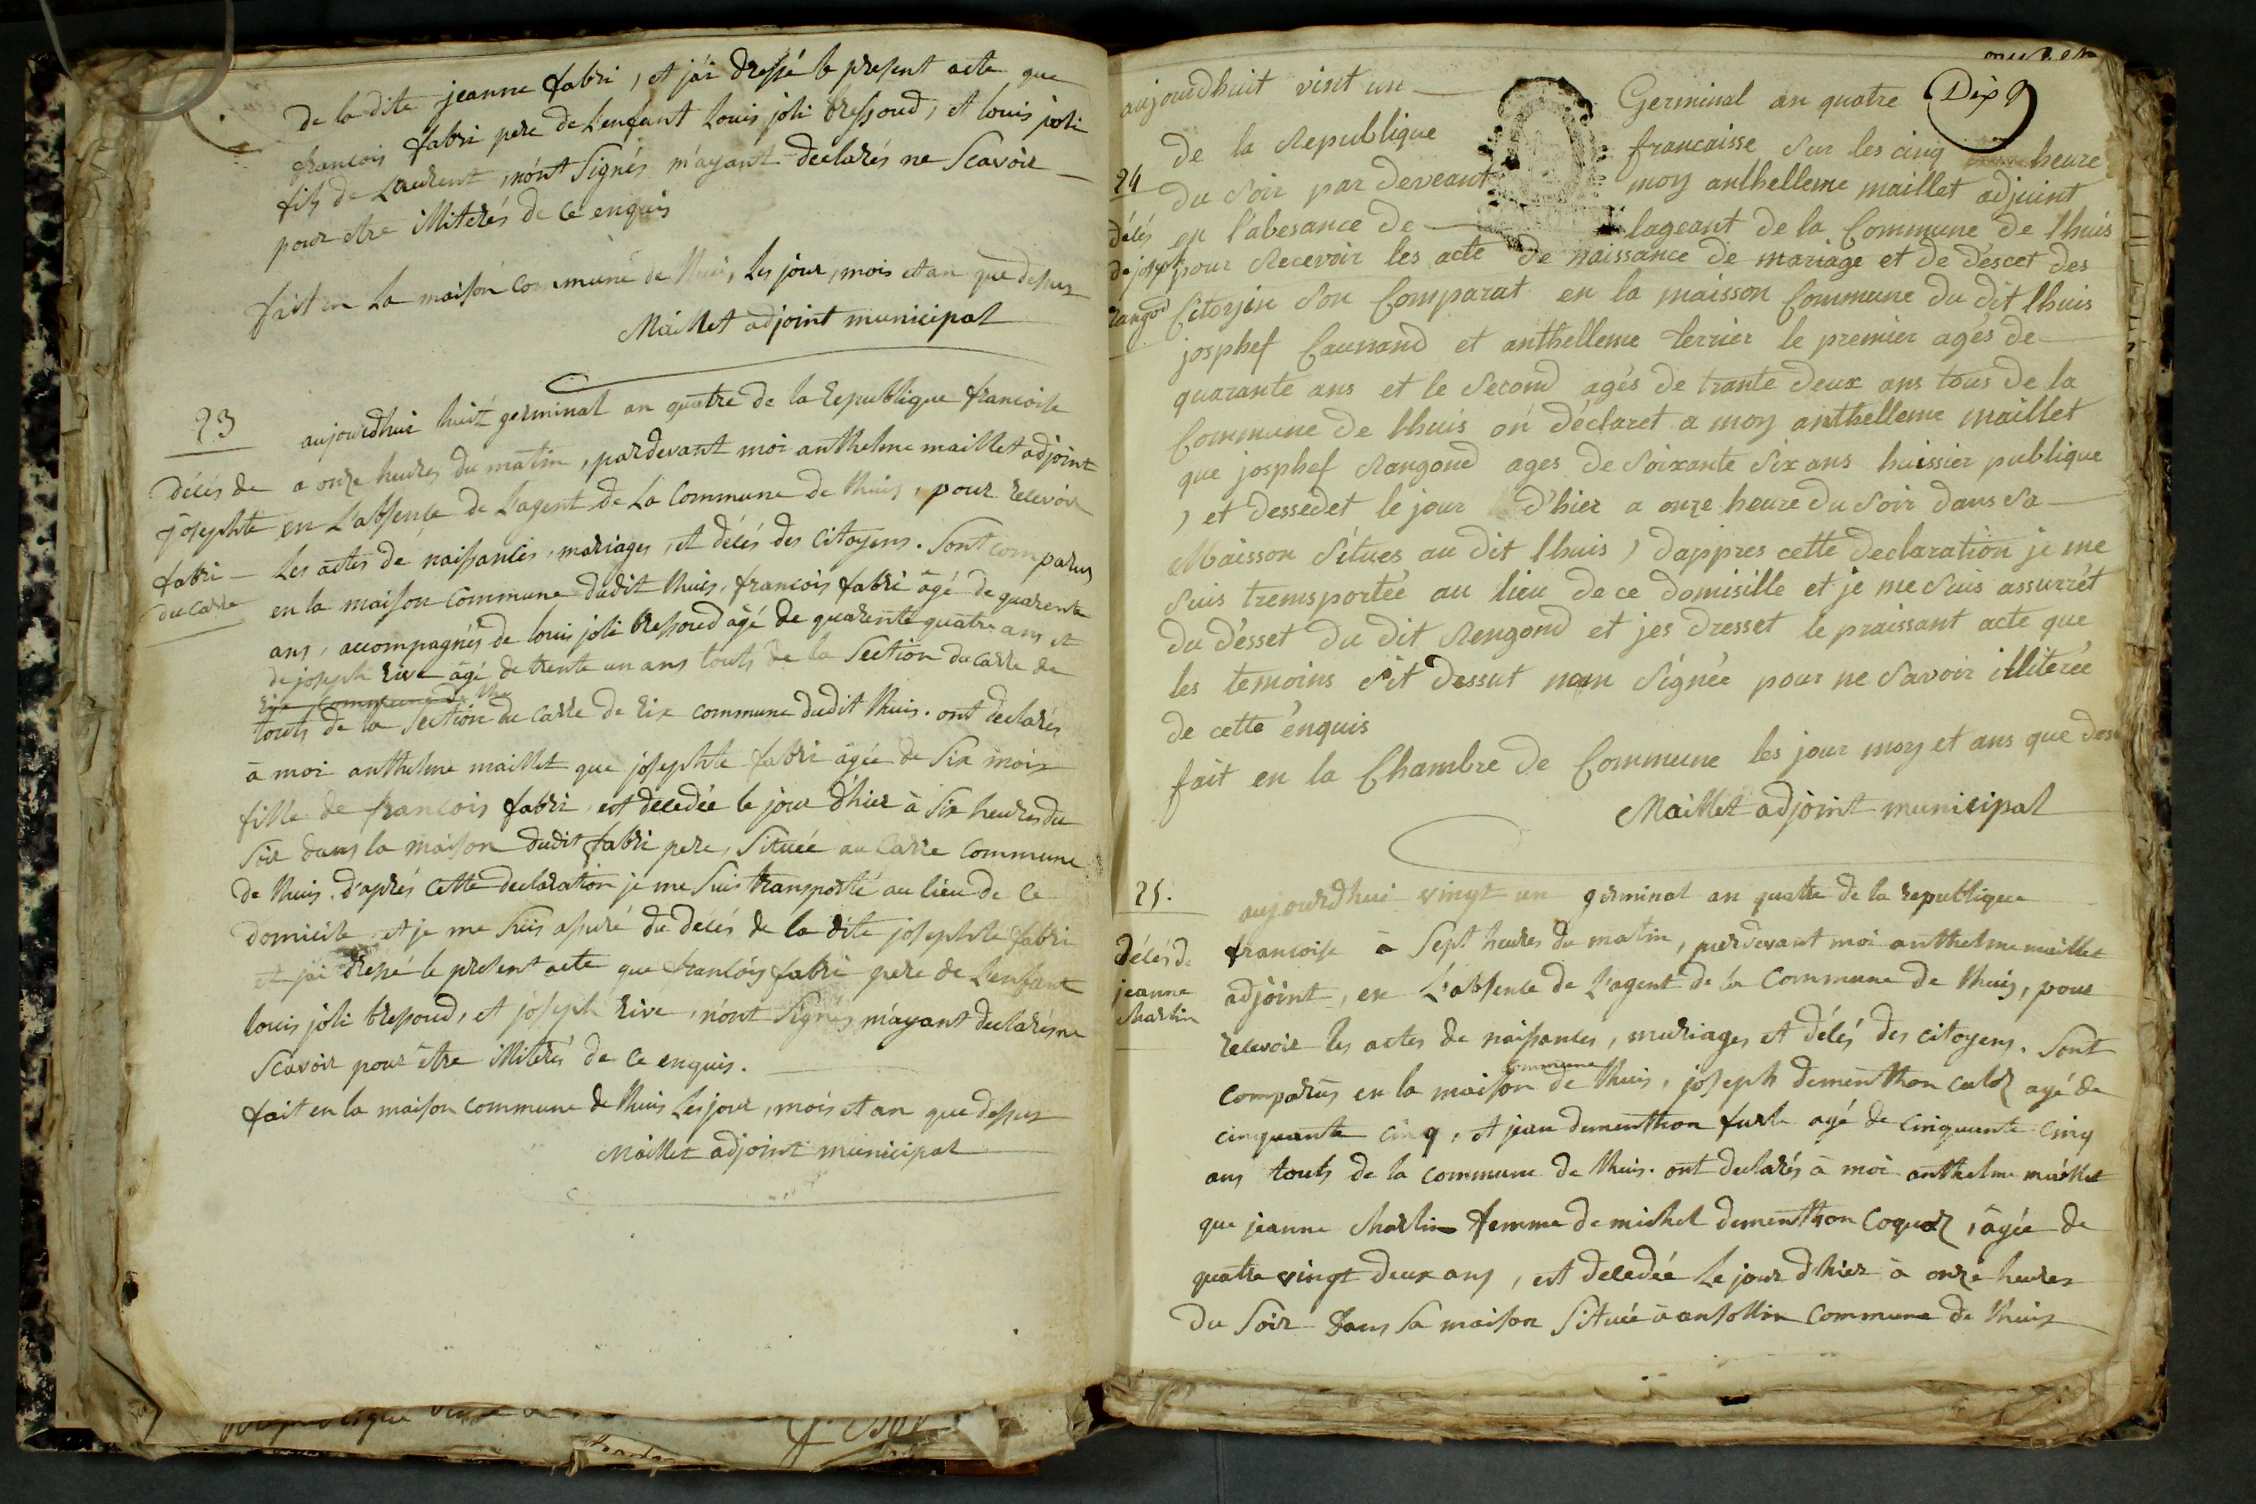 de la dite jeanne fabri, et j'ai dressé le present acte que
francois fabri pere de L'enfant Louis joli bressoud, et louis joli
fils de Laurent, n'ont Signés m'ayant declarés ne Scavoir
pour etre illiterés de ce enquis
fait en La maison commune de lhuis, Les jour, mois et an que dessus
Maillet adjoint municipal
23
décés de
josephte
fabri
du Carre
aujourdhui huit germinal an quatre de la Republique francoise
a onze heures du matin, pardevant moi anthelme maillet adjoint
en L'absence de L'agent de La Commune de lhuis, pour recevoir
Les actes de naissances, mariages, et décés des Citoyens. Sont comparus
en la maison Commune dudit lhuis, francois fabri âgé de quarente
ans, accompagnés de louis joli bressoud âgé de quarente quatre ans et
de joseph Rive âgé de trente un ans touts de la Section du Carre de
Rix Commune de lhu
touts de la Section du Carre de Rix commune dudit lhuis. ont declarés
à moi anthelme maillet que josephte fabri âgée de Six mois
fille de francois fabri, est decedée le jour d'hier à Six heures du
Soir dans la maison dudit fabri pere, Située au Carre Commune
de lhuis. d'aprés cette declaration je me Suis transporté au lieu de ce
domicile et je me Suis assuré du décés de la dite josephte fabri
et j'ai dressé le present acte que francois fabri pere de L'enfant
louis joli bressoud, et joseph Rive, n'ont Signés m'ayant declarés ne
Scavoir pour être illiterés de ce enquis.
fait en la maison commune de lhuis Les jour, mois et an que dessus
Maillet adjoint municipal
Dix 9
24
délés
de joseph
rangod
aujourdhuit vint un Germinal an quatre
de la Republique francaisse Sur les cinq heure
du Soir par deveant moy anthelleme maillet adjoint
en l'abesance de lageant de la Commune de lhuis
pour Recevoir les acte de naissance de mariage et de descet des
Citoyin Son Comparat en la maisson Commune du dit lhuis
josphef Caunand et anthelleme terrier le premier agés de
quarante ans et le Second agés de trante deux ans tous de la
Commune de lhuis on déclaret a moy anthelleme maillet
que josphef Rangoud ages de Soixante Six ans huissier publique
, et dessedet le jour d'hier a onze heure du Soir dans Sa
Maisson Sitües au dit lhuis, dappres cette declaration je me
Suis tremsportée au lieu de ce domisille et je me Suis assurrét
du d'esset du dit Rengond et jes dresset le praissant acte que
les temoins Sit dessut non Signée pour ne Savoir illiterée
de cette enquis
fait en la Chambre de Commune les jour moy et ans que des
Maillet adjoint municipal
25.
Décés de
jeanne
Charlin
aujourdhui vingt un germinal an quatre de la republique
francoise à Sept heures du matin, pardevant moi anthelme maillet
adjoint, en L'absence de L'agent de la Commune de lhuis, pour
recevoir les actes de naissances, mariages et décés des citoyens. Sont
commune
comparus en la maison de lhuis, joseph dementhon caloz agé de
cinquante cinq, et jean dementhon furla agé de cinquante cinq
ans touts de la commune de lhuis. ont declarés à moi anthelme maillet
que jeanne Charlin femme de michel dementhon Coquoz, âgée de
quatre vingt deux ans, est decedée Le jour d'hier à onze heures
du Soir dans Sa maison Située à ansollin Commune de lhuis